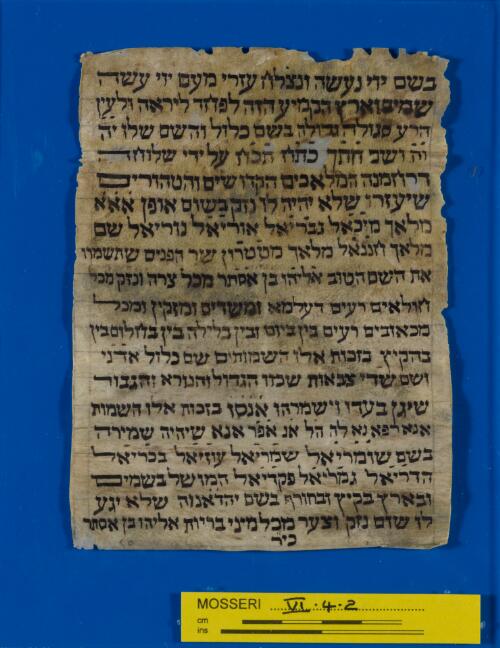 בשם ייי נעשה ונצלח עזרי מעם ייי עשה
שמים וארץ הקמיע הזה לפחד ליראה ולעין
הרע סגולה גדולה בשם כלול והשם שלו יה
יה ושב חתך כתח תכח על ידי שלוחה
הרוחמנה המלאכים הקדושים והטהורים
שיעזרו שלא יהיה לו נזק בשום אופן אאא
מלאך מיכאל גבריאל אוריאל נוריאל שם
מלאך חננאל מלאך מטטרון שר הפנים שתשמרו
את השם הטוב אליהו בן אסתר מכל צרה ונזק מכל
חולאים רעים דעלמא ומשדים ומזקין ומכל
מכאובים רעים בין ביום ובין בלילה בין בחלום בין
בהקיץ בזכות אלו השמותים שם כלול אדני
ושם שדי צבאות שמו הגדול והנורא והגבור
שיגן בעדו וישמרהו אנסו בזכות אלו השמות
אנא רפא נא לה הל אנ אפר אנא שיהיה שמירה
בשם שומריאל שמריאל עוזיאל בכריאל
הדריאל גמריאל פקדיאל המושל בשמים
ובארץ בקיץ ובחורף בשם יהדאנוה שלא יגע
לו שום נזק וצער מכל מיני בריות אליהו בן אסתר
כיר
MOSSERI VI.4.2
cm
ins